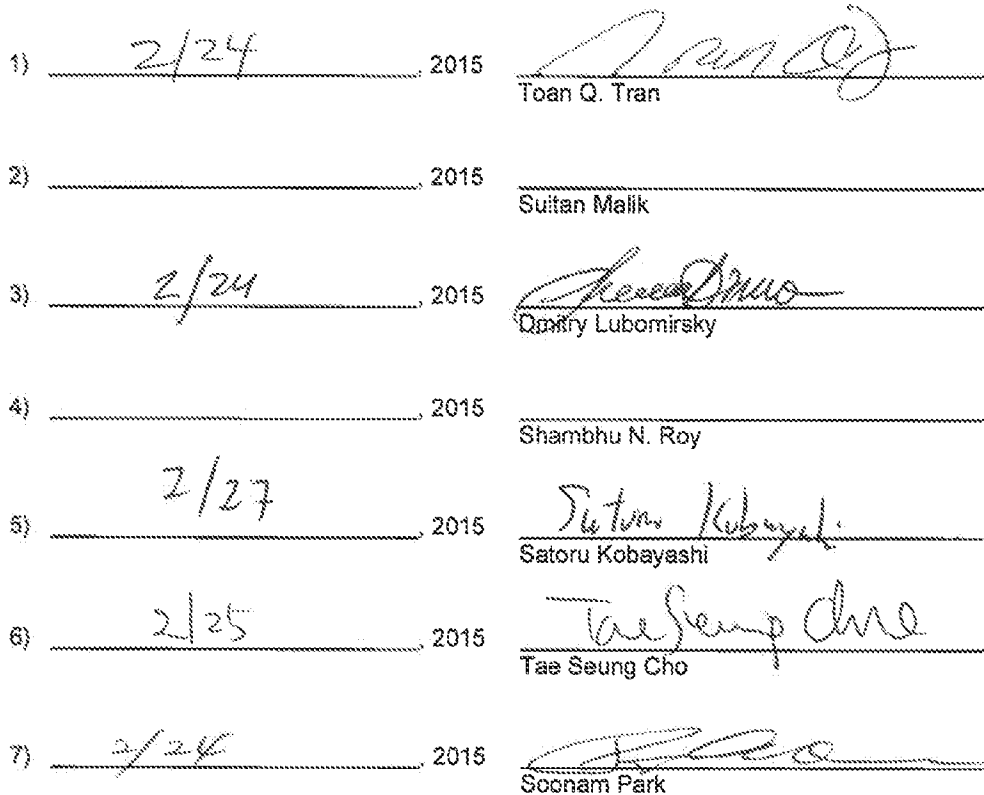 1) 2/24, 2015
Toan Q. Tran
2) , 2015
Sultan Malik
3) 2/24, 2015
Dmitry Lubomirsky
4) , 2015
Shambhu N. Roy
5) 2/27, 2015 Satoru Kobayashi
Satoru Kobayashi
6) 2/25, 2015 Tae Seung Cho
Tae Seung Cho
7) 2/24, 2015
Soonam Park